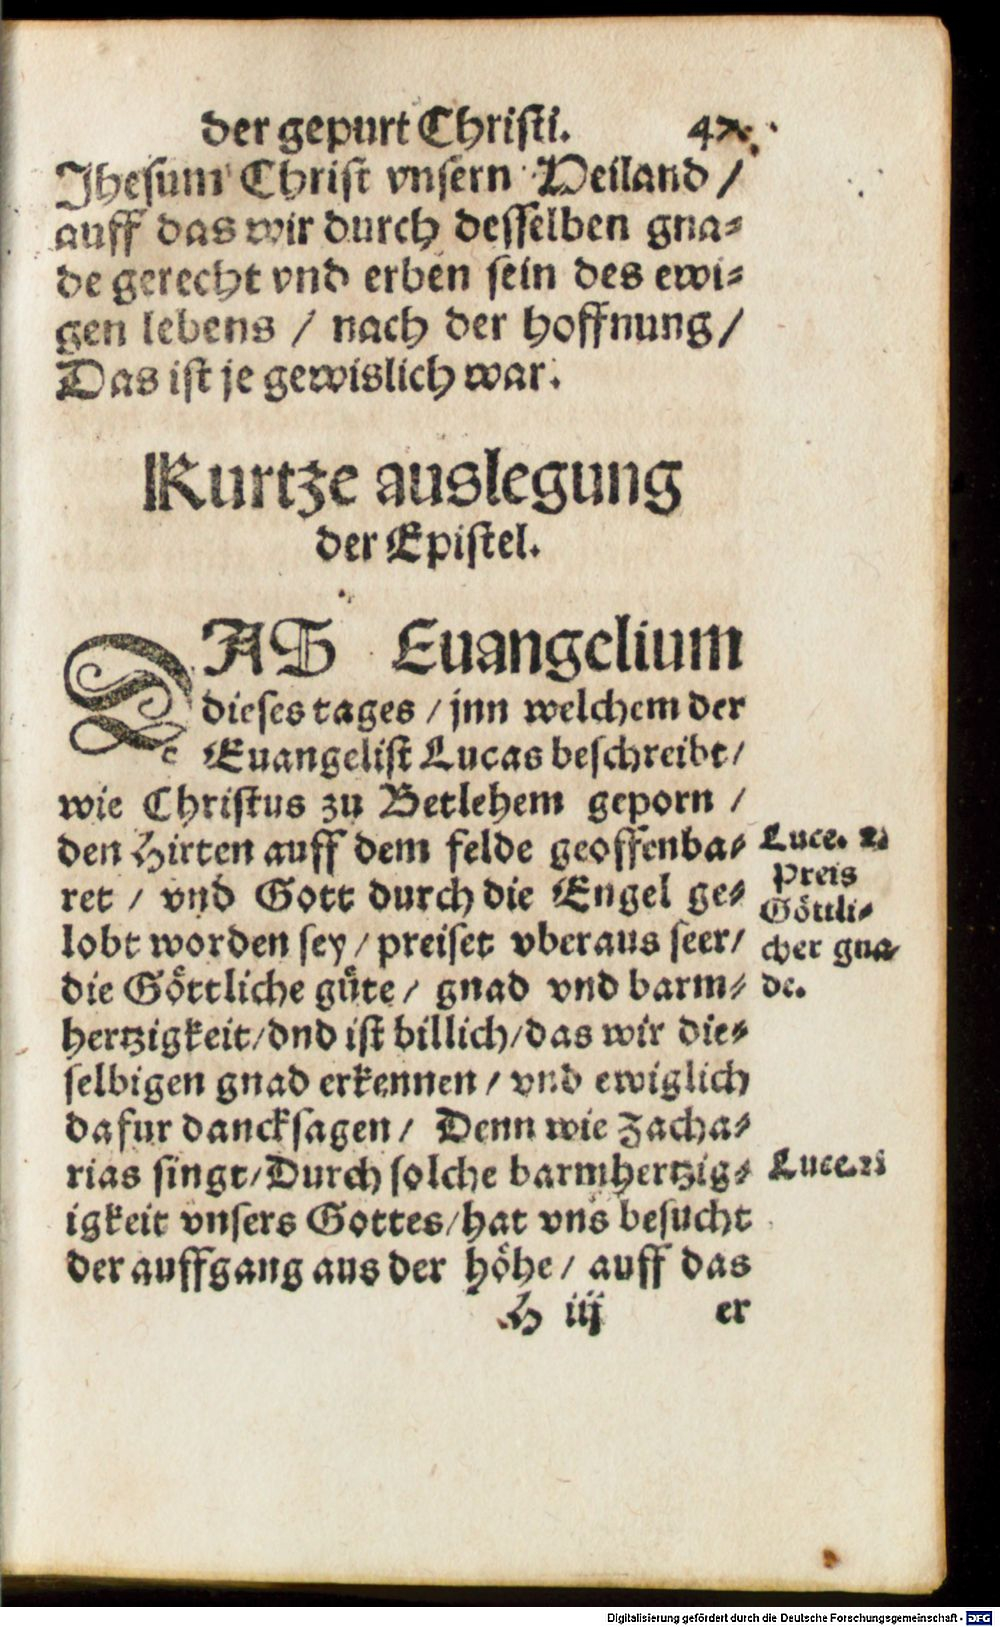 der gepurt Christi. 47.
Jhesum Christ vnsern Heiland /
auff das wir durch desselben gna⸗
de gerecht vnd erben sein des ewi⸗
gen lebens / nach der hoffnung /
Das ist je gewislich war.
Kurtze auslegung
der Epistel.
DAS Euangelium
dieses tages / jnn welchem der
Euangelist Lucas beschreibt /
wie Christus zu Betlehem geporn /
den Hirten auff dem felde geoffenba⸗
ret / vnd Gott durch die Engel ge⸗
lobt worden sey / preiset vberaus seer /
die Göttliche güte / gnad vnd barm⸗
hertzigkeit / vnd ist billich / das wir die⸗
selbigen gnad erkennen / vnd ewiglich
dafur dancksagen / Denn wie Zacha⸗
rias singt / Durch solche barmhertzig⸗
igkeit vnsers Gottes / hat vns besucht
der auffgang aus der höhe / auff das
H iij er
Luce. 2.
Preis
Göttli⸗
cher gna⸗
de.
Luce.
Digitalisierung gefördert durch die Deutsche Forschungsgemeinschaft - DFG